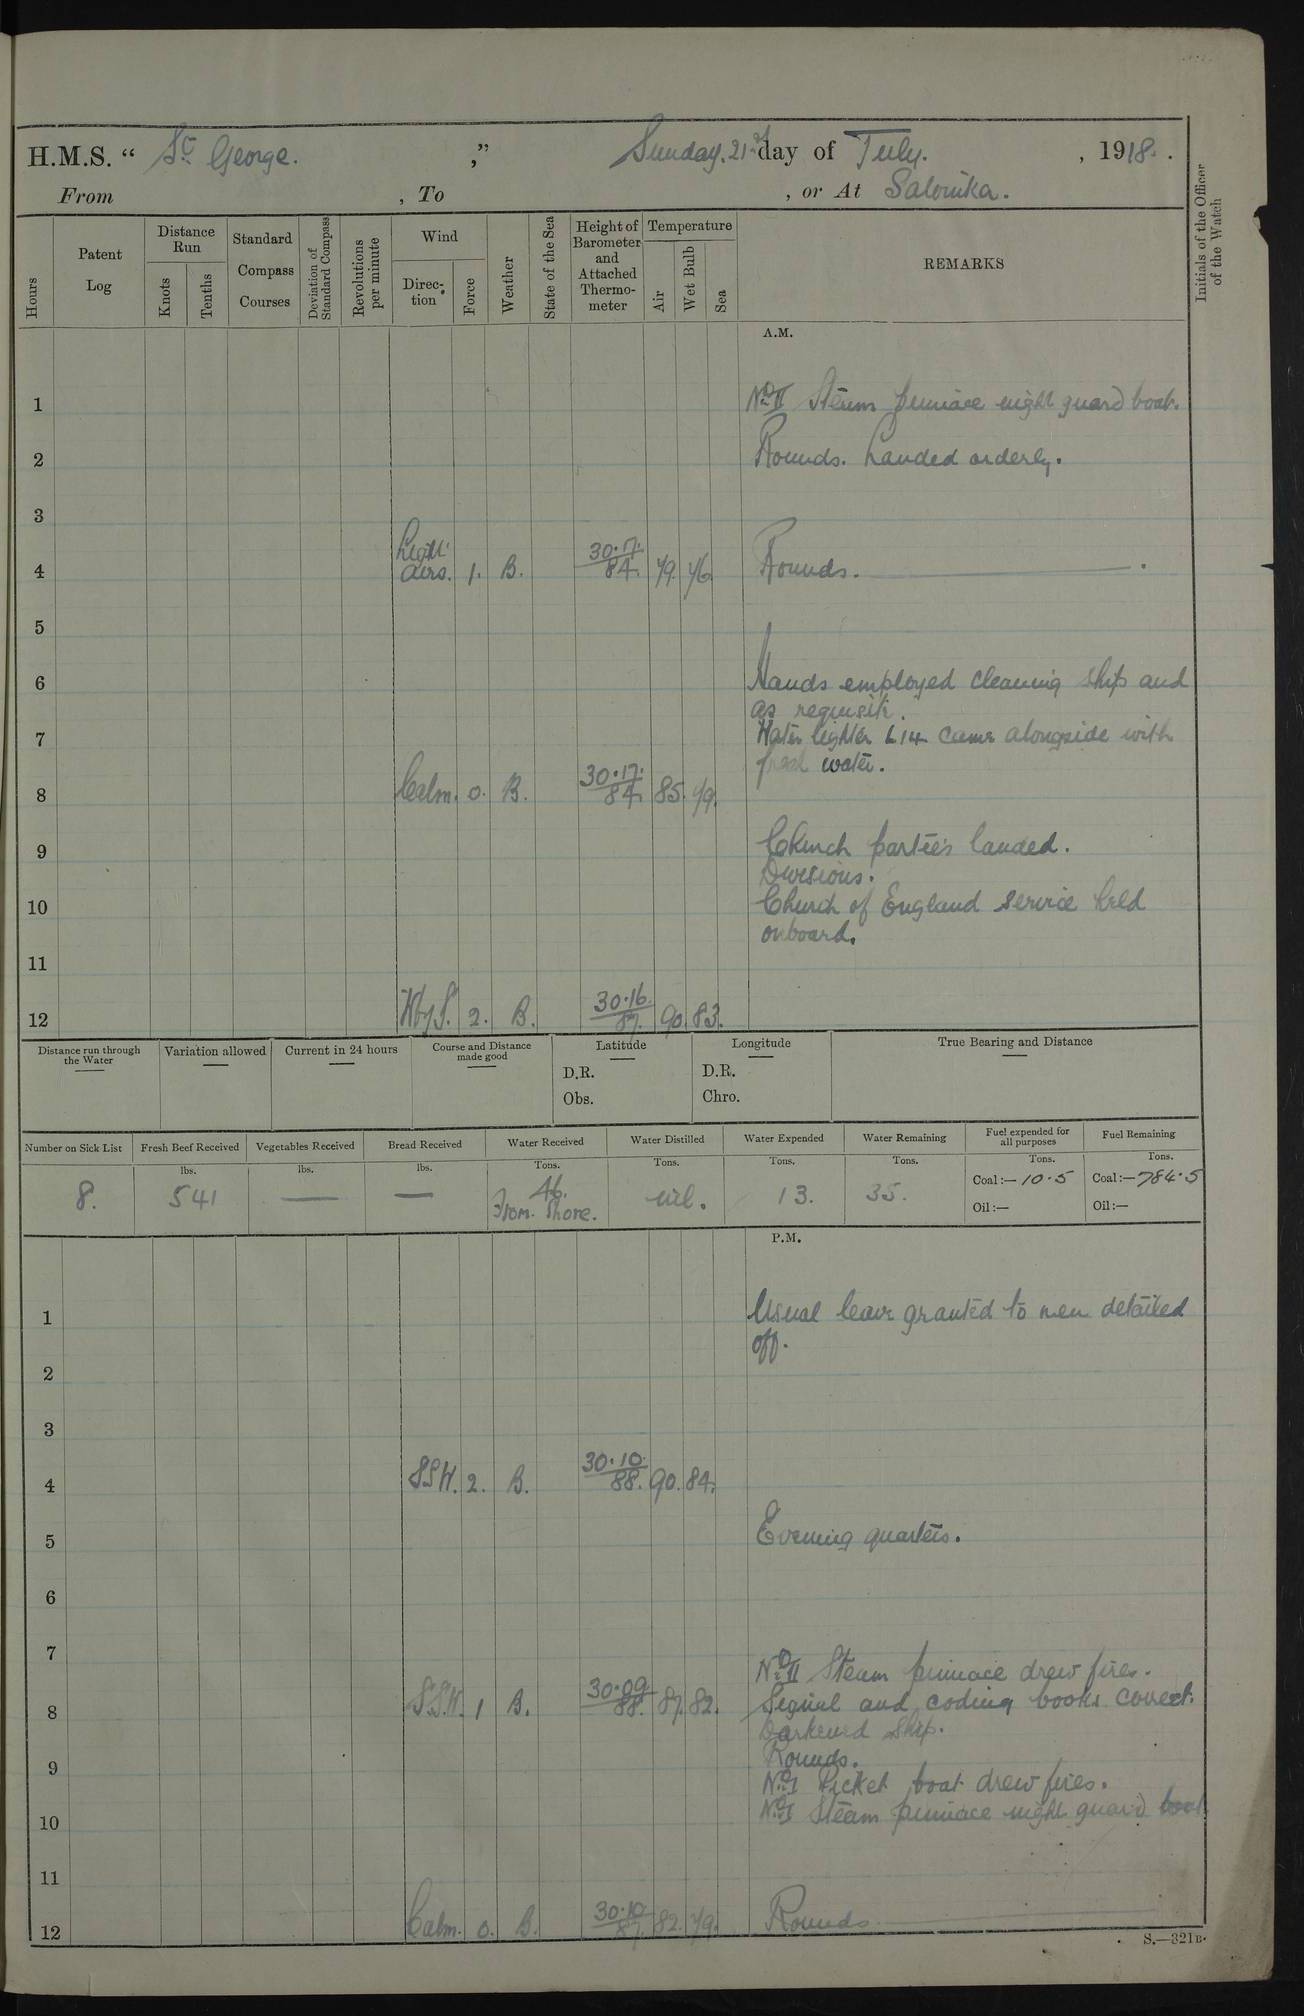 H.M.S. “ St George. ,” Sunday. 21st day of July. , 1918.
From , To , or At Salonika.
Hours Patent Log Distance Run Knots Tenths Standard Compass Courses Deviation of Standard Compass Revolutions per minute Wind Direc- tion Force Weather State of the Sea Height of Barometer and Attached Thermo- meter Temperature Air Wet Bulb Sea REMARKS Initials of the Officer of the Watch
A.M.
1 No II Steam pinnace night guard boat.
2 Rounds. Landed orderly.
3
4 Light airs. 1. B. 30.17. 84. 79. 76 Rounds.
5
6 Hands employed cleaning ship and
as requisite.
7 Water lighter L14 came alongside with
fresh water.
8 Calm. 0. B. 30.17. 84. 85. 79.
9 Church parties landed.
Divisions.
10 Church of England service held
onboard.
11
12 W by S. 2. B. 30.16. 87. 90. 83.
Distance run through the Water Variation allowed Current in 24 hours Course and Distance made good Latitude Longitude True Bearing and Distance
D.R. D.R.
Obs. Chro.
Number on Sick List Fresh Beef Received Vegetables Received Bread Received Water Received Water Distilled Water Expended Water Remaining Fuel expended for all purposes Fuel Remaining
lbs. lbs. lbs. Tons. Tons. Tons. Tons. Tons. Tons.
8. 541 — — 46. From Shore. nil. 13. 35. Coal:—10.5 Coal:—784.5
Oil:— Oil:—
P.M.
1 Usual leave granted to men detailed
off.
2
3
4 SSW. 2. B. 30.10. 88. 90. 84.
5 Evening quarters.
6
7 No II Steam pinnace drew fires.
8 S.S.W. 1 B. 30.09 88. 87. 82. Signal and coding books correct.
Darkened Ship.
9 Rounds.
No I Picket boat drew fires.
10 No I Steam pinnace night guard boat
11
12 Calm. 0. B. 30.10 87. 82. 79. Rounds
S.—321B.